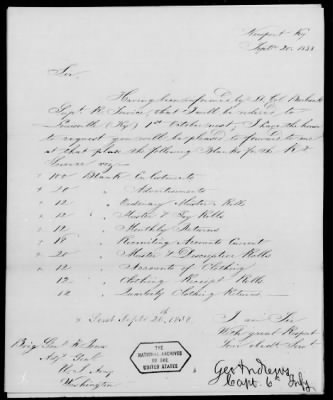 Newport Ky
Sept. 20. 1858
Sir,
Having been informed by Lt. Col. Burbank
Supt. R. Service, that I will be ordered to
(Ky) 1st October next, I have the honor
to request you will be pleased to forward to me
at that place the following Blanks for the Rt
Service viz
100 Blank Enlistments
20 " Advertisements
12 " Ordinary Muster Rolls
12 " Muster & Pay Rolls
12 " Monthly Returns
18 " Recruiting Accounts Current
20 " Muster & Descriptive Rolls
12 " Accounts of Clothing
12 " Clothing Receipt Rolls
12 " Quarterly Clothing Returns
Sent Sept. 24th 1858.
I am Sir
With great Respect
Your obedt Servt
Geo Andrews
Capt. 6th Infy
Brig. Genl.
Adjt. Genl.
U.S. Army
Washington
THE
NATIONAL ARCHIVES
OF THE
UNITED STATES